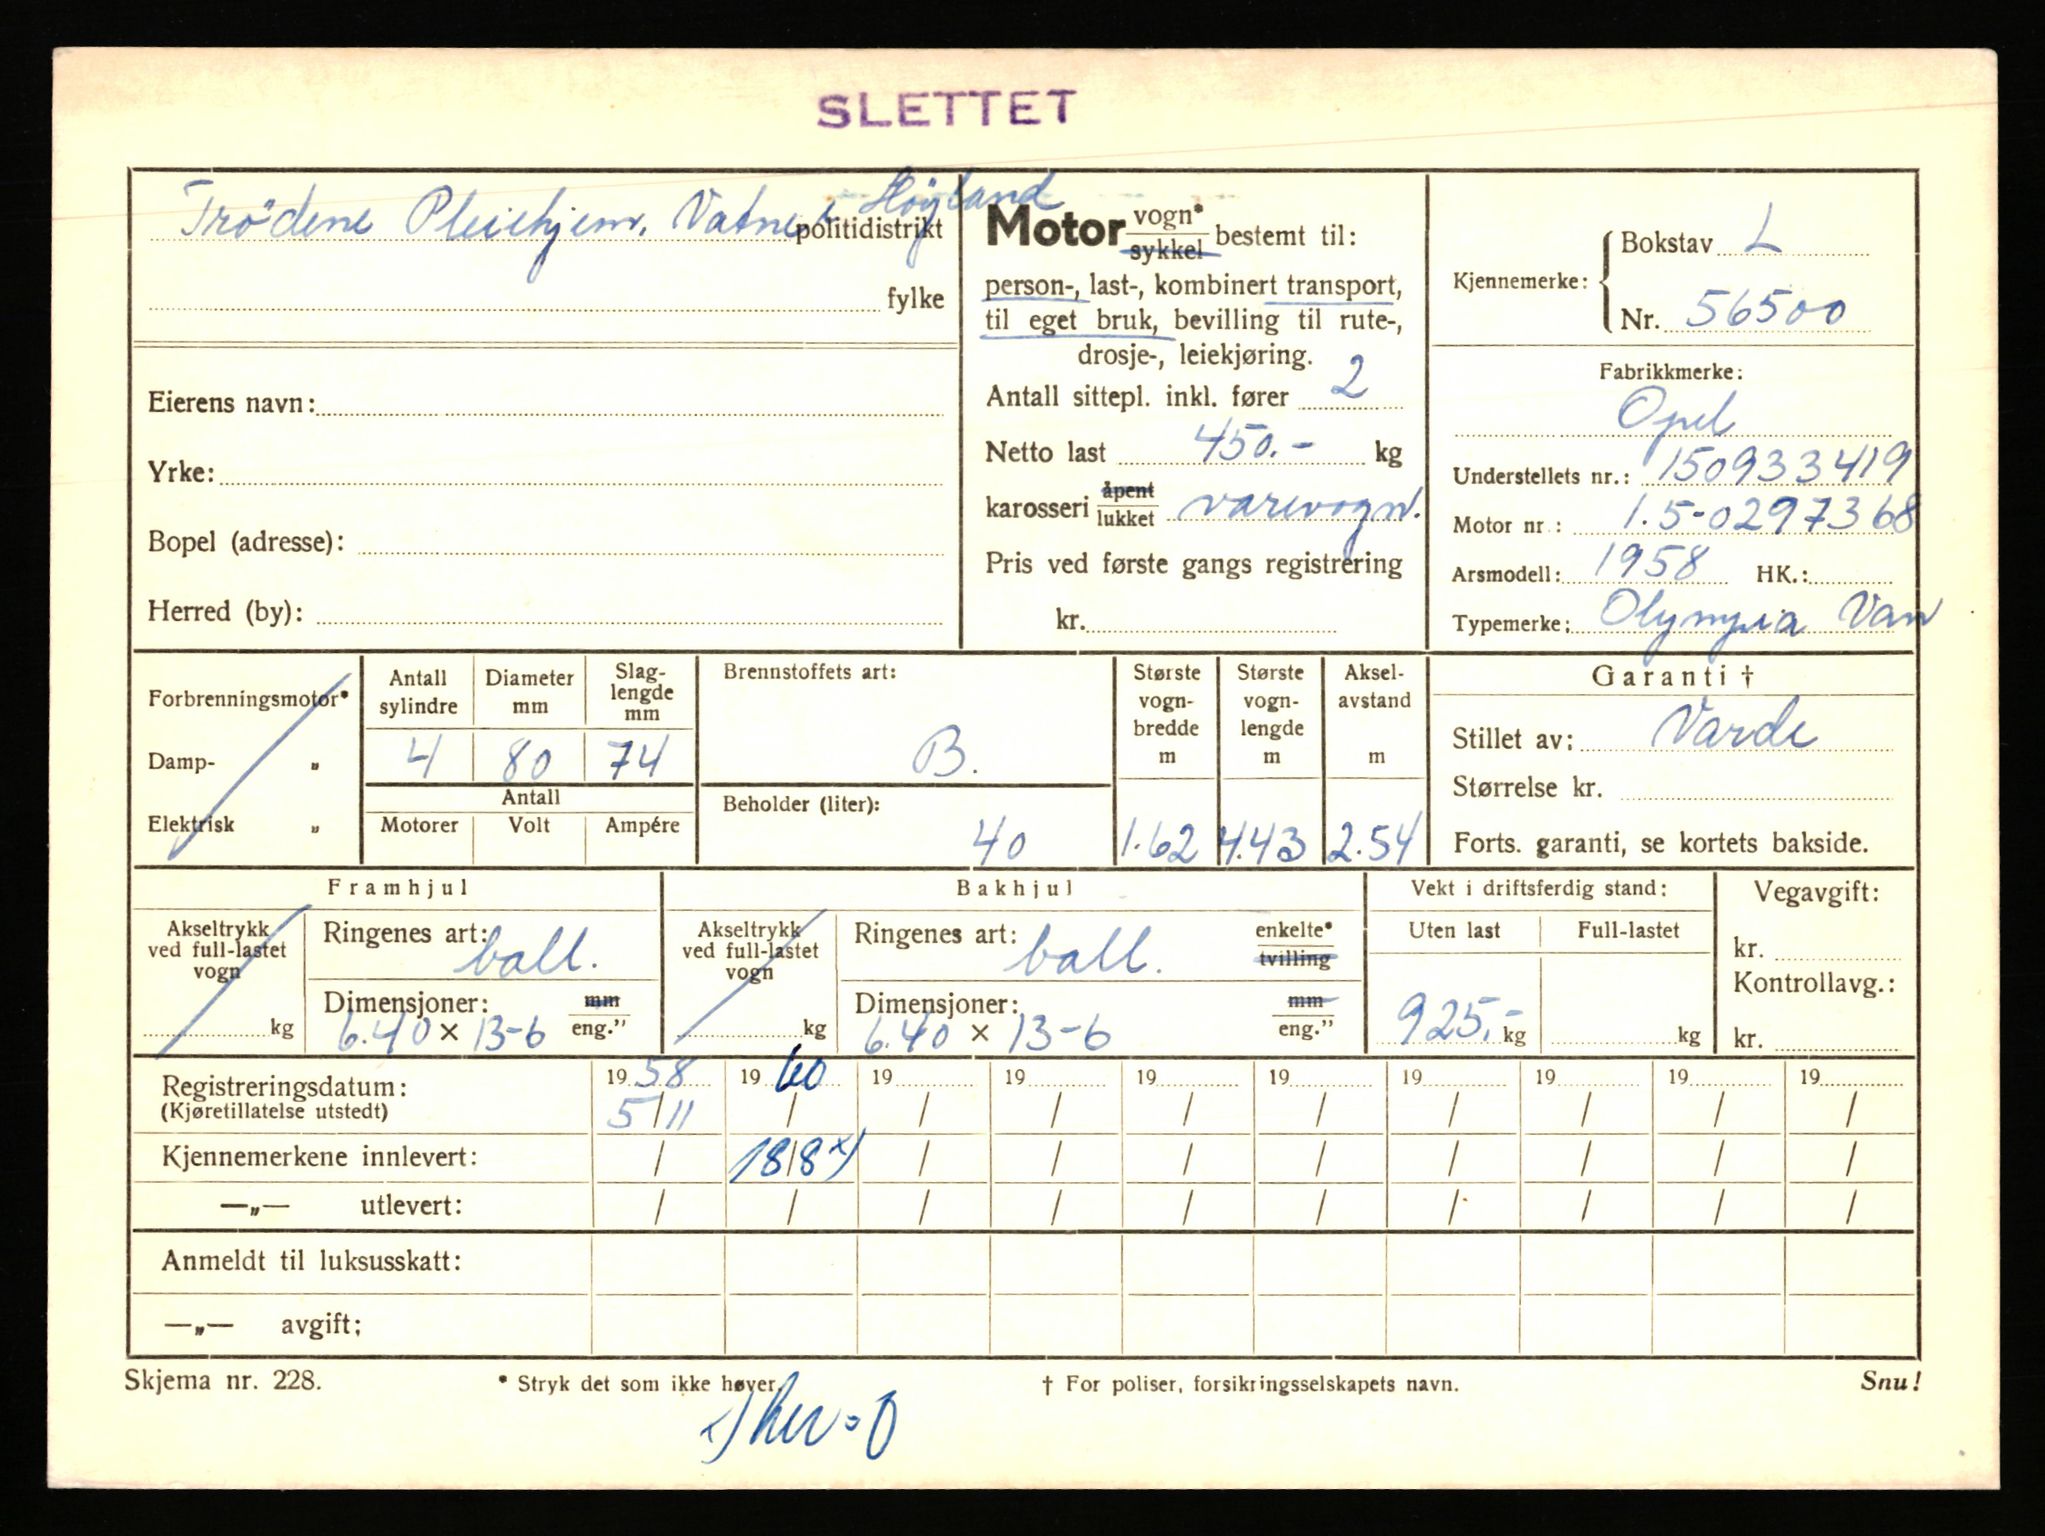 SLETTET
Trödene Pleiehjem, Vatne, Høyland
politidistrikt
fylke
Eierens navn:
Yrke:
Bopel (adresse):
Herred (by):
Motor vogn* sykkel bestemt til:
person-, last-, kombinert transport,
til eget bruk, bevilling til rute-,
drosje-, leiekjøring.
Antall sittepl. inkl. fører 2
Netto last 450.- kg
karosseri åpent lukket varevogn.
Pris ved første gangs registrering
kr.
Kjennemerke: Bokstav L
Nr. 56500
Fabrikkmerke:
Opel
Understellets nr.: 150933419
Motor nr.: 1.5-0297368
Arsmodell: 1958 HK.:
Typemerke: Olympia Van
Forbrenningsmotor*
Damp- „
Elektrisk „
Antall sylindre Diameter mm Slag-lengde mm
4 80 74
Antall
Motorer Volt Ampére
Brennstoffets art:
B.
Beholder (liter):
40
Største vogn-bredde m Største vogn-lengde m Aksel-avstand m
1.62 4.43 2.54
Garanti †
Stillet av: Varde
Størrelse kr.
Forts. garanti, se kortets bakside.
Framhjul
Akseltrykk ved full-lastet vogn kg
Ringenes art: ball.
Dimensjoner: mm eng.”
6.40 × 13-6
Bakhjul
Akseltrykk ved full-lastet vogn kg
Ringenes art: ball. enkelte* tvilling
Dimensjoner: mm eng.”
6.40 × 13-6
Vekt i driftsferdig stand:
Uten last Full-lastet
925,- kg kg
Vegavgift:
kr.
Kontrollavg.:
kr.
Registreringsdatum: 1958 1960 19 19 19 19 19 19 19 19
(Kjøretillatelse utstedt) 5/11 / / / / / / / / /
Kjennemerkene innlevert: / 18/8 x) / / / / / / / /
—„— utlevert: / / / / / / / / / /
Anmeldt til luksusskatt:
—„— avgift:
Skjema nr. 228. * Stryk det som ikke høver. † For poliser, forsikringsselskapets navn. Snu!